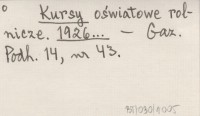 Kursy oświatowe rol-
nicze. 1926... — Gaz.
Podh. 14, nr 43.